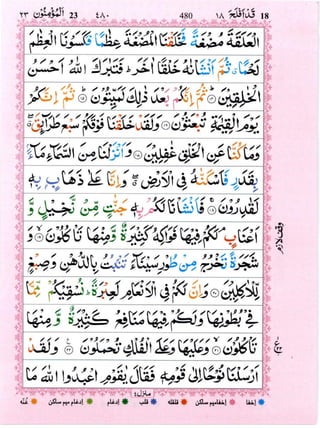 ٢٣ اَلْمُؤْمِنُوْن 23 ٤٨٠ 480 ١٨ قَدْ اَفْلَحَ 18
الْعَلَقَةَ مُضْغَةً فَخَلَقْنَا الْمُضْغَةَ عِظٰمًا فَكَسَوْنَا الْعِظٰمَ
لَحْمًا ثُمَّ اَنْشَاْنٰهُ خَلْقًا اٰخَرَ فَتَبٰرَكَ اللّٰهُ اَحْسَنُ
الْخٰلِقِيْنَ ۝ ثُمَّ اِنَّكُمْ بَعْدَ ذٰلِكَ لَمَيِّتُوْنَ ۝ ثُمَّ اِنَّكُمْ
يَوْمَ الْقِيٰمَةِ تُبْعَثُوْنَ ۝ وَلَقَدْ خَلَقْنَا فَوْقَكُمْ سَبْعَ طَرَآئِقَ
وَمَا كُنَّا عَنِ الْخَلْقِ غٰفِلِيْنَ ۝ وَاَنْزَلْنَا مِنَ السَّمَآءِ مَآءً
بِقَدَرٍ فَاَسْكَنّٰهُ فِى الْاَرْضِ وَاِنَّا عَلٰى ذَهَابٍ بِهٖ
لَقٰدِرُوْنَ ۝ فَاَنْشَاْنَا لَكُمْ بِهٖ جَنّٰتٍ مِّنْ نَّخِيْلٍ وَّ
اَعْنَابٍ لَكُمْ فِيْهَا فَوَاكِهُ كَثِيْرَةٌ وَّمِنْهَا تَاْكُلُوْنَ ۝ وَ
شَجَرَةً تَخْرُجُ مِنْ طُوْرِ سَيْنَآءَ تَنْۢبُتُ بِالدُّهْنِ وَصِبْغٍ
لِّلْاٰكِلِيْنَ ۝ وَاِنَّ لَكُمْ فِى الْاَنْعَامِ لَعِبْرَةً نُسْقِيْكُمْ مِّمَّا
فِىْ بُطُوْنِهَا وَلَكُمْ فِيْهَا مَنَافِعُ كَثِيْرَةٌ وَّمِنْهَا
تَاْكُلُوْنَ ۝ وَعَلَيْهَا وَعَلَى الْفُلْكِ تُحْمَلُوْنَ ۝ وَلَقَدْ
اَرْسَلْنَا نُوْحًا اِلٰى قَوْمِهٖ فَقَالَ يٰقَوْمِ اعْبُدُوا اللّٰهَ مَا
اخفا اخفا میم ساکن قلقلہ قلب ادغام ادغام میم ساکن غنہ